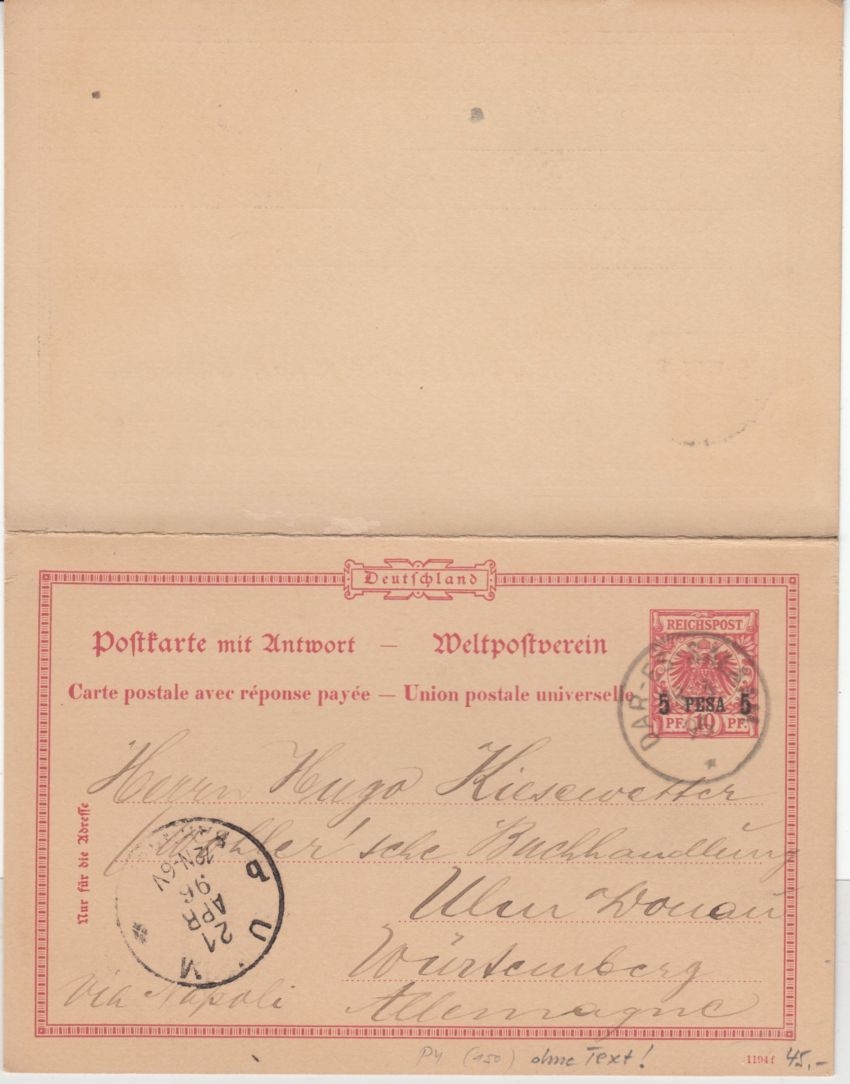 Deutschland
Postkarte mit Antwort — Weltpostverein
Carte postale avec réponse payée — Union postale universelle
REICHSPOST
5 PESA 5
PF. 10 PF.
DAR-ES-
Herrn Hugo Kiesewetter
Buchhandlung
Ulm Donau
Württemberg
Allemagne
via Napoli
Nur für die Adresse
21
APR
96
12 N 6V
P4 (150) ohne Text!
1194f
45,-